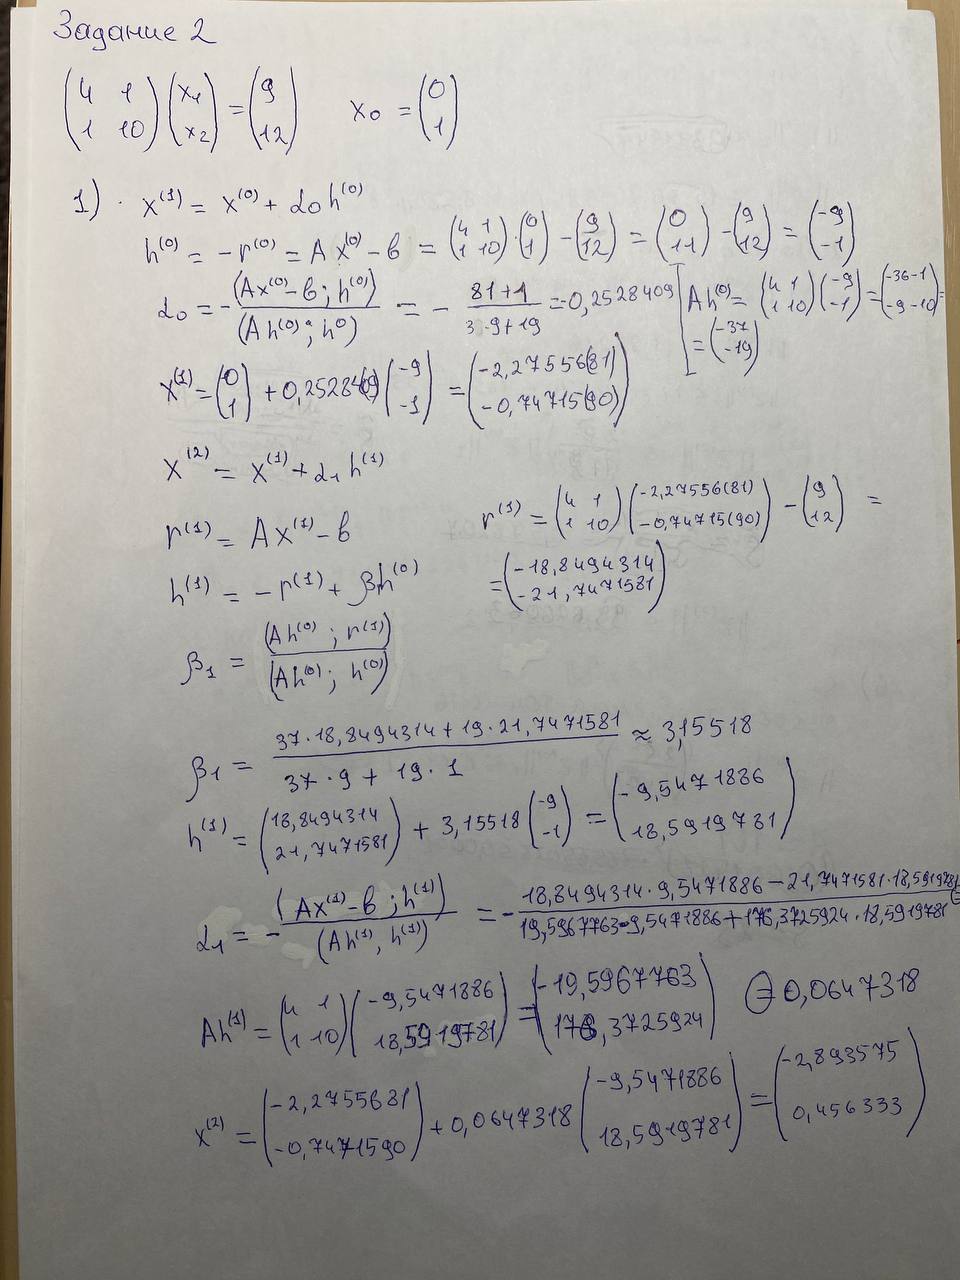 Задание 2
(4 1; 1 10)(x₁; x₂) = (9; 12) x₀ = (0; 1)
1) · x⁽¹⁾ = x⁽⁰⁾ + α₀h⁽⁰⁾
h⁽⁰⁾ = -r⁽⁰⁾ = Ax⁽⁰⁾ - b = (4 1; 1 10)·(0; 1) - (9; 12) = (0; 11) - (9; 12) = (-9; -1)
α₀ = -(Ax⁽⁰⁾-b; h⁽⁰⁾)/(Ah⁽⁰⁾; h⁰) = - (81+1)/(3 ·9+19) = -0,2528409 [Ah⁽⁰⁾ = (4 1; 1 10)(-9; -1) = (-36-1; -9-10) =
= (-37; -19)
x⁽¹⁾ = (0; 1) + 0,252840(9)(-9; -1) = (-2,27556(81); -0,74715(90))
x⁽²⁾ = x⁽¹⁾ + α₁h⁽¹⁾
r⁽¹⁾ = Ax⁽¹⁾ - b r⁽¹⁾ = (4 1; 1 10)(-2,27556(81); -0,74715(90)) - (9; 12) =
h⁽¹⁾ = -r⁽¹⁾ + βh⁽⁰⁾ = (-18,8494314; -21,7471581)
β₁ = (Ah⁽⁰⁾; r⁽¹⁾)/(Ah⁽⁰⁾; h⁽⁰⁾)
β₁ = (37·18,8494314 + 19·21,7471581)/(37·9 + 19·1) ≈ 3,15518
h⁽¹⁾ = (18,8494314; 21,7471581) + 3,15518(-9; -1) = (-9,5471886; 18,5919781)
α₁ = -(Ax⁽¹⁾-b; h⁽¹⁾)/(Ah⁽¹⁾, h⁽¹⁾) = -(18,8494314·9,5471886 - 21,7471581·18,5919781)/(19,5967763·9,5471886 + 176,3725924·18,5919781) =
Ah⁽¹⁾ = (4 1; 1 10)(-9,5471886; 18,5919781) = (-19,5967763; 176,3725924) = 0,0647318
x⁽²⁾ = (-2,2755681; -0,7471590) + 0,0647318(-9,5471886; 18,5919781) = (-2,893575; 0,456333)